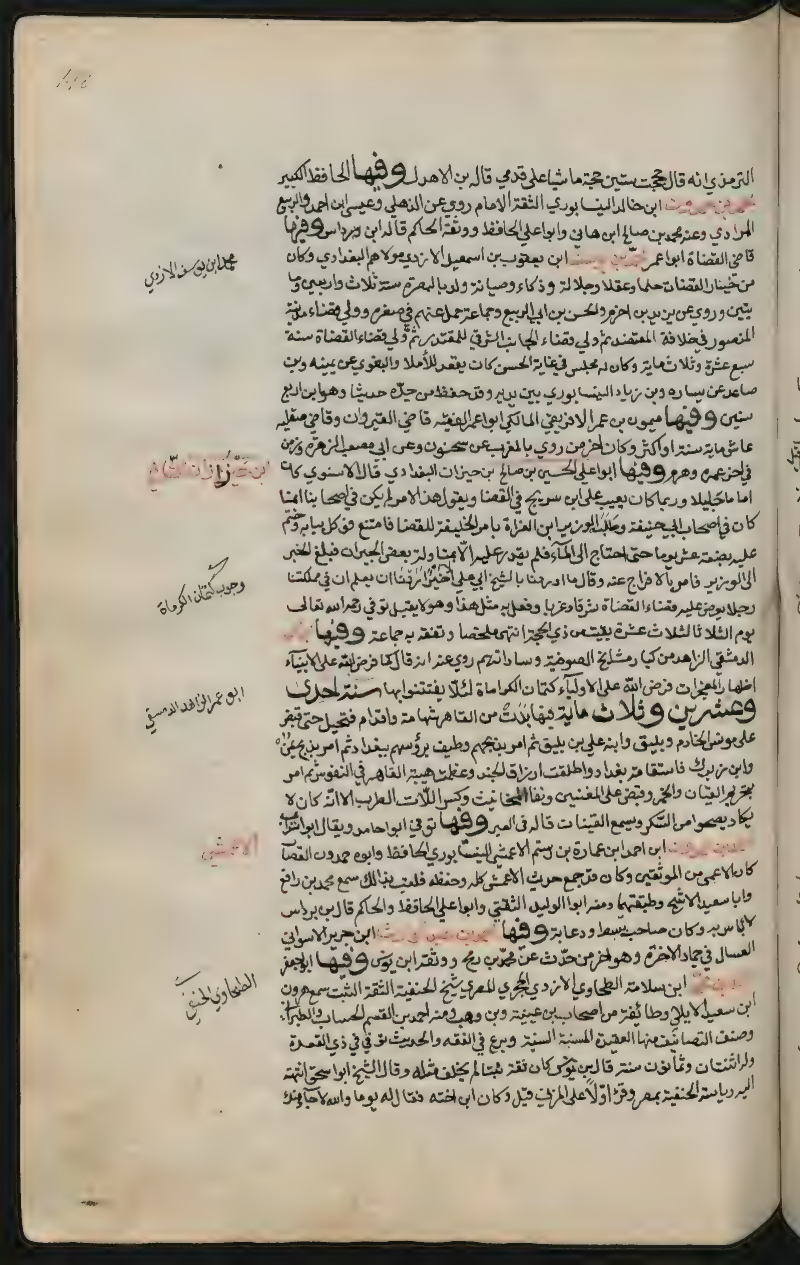 الترمذي انه قال حججت ستين حجة ماشيا على قدمي قاله بن الاهدل وفيها الحافظ الكبير
ابن خالد النيسابوري الثقة الامام روى عن الذهلي وعيسى ابن احمد والربيع
المرادي وعنه محمد بن صالح ابن هاني وابوا علي الحافظ ووثقه الحاكم قاله ابن برداس وفيها
قاضي القضاة ابوا عمر محمد بن يوسف ابن يعقوب بن اسمعيل الازدي مولاهم البغدادي وكان
محمد ابن يوسف الازدي
من خيار القضاة حلما وعقلا وجلالة وذكاء وصيانة ولد بالبصرة سنة ثلاث واربعين وما
يتين وروى عن زيد بن اخزم والحسن بن ابي الربيع وجماعة حمل عنهم في صغره وولي قضاء مدينة
المنصور في خلافة المعتضد ثم ولي قضاء الجانب الشرقي للمقتدر ثم ولي قضاء القضاة سنة
سبع عشرة وثلاث ماية وكان له مجلس في غاية الحسن كان يقعد للأملا والبغوي عن يمينه وبن
صاعد عن يساره وبن زياد النيسابوري بين يديه وقد حفظ من جده حديثا وهو ابن اربع
سنين وفيها ميمون بن عمر الافريقي المالكي ابوا عمر الفقيه قاضي القيروان وقاضي صقلية
عاش ماية سنة او اكثر وكان اخر من روى بالمغرب عن سحنون وعن ابي مصعب الزهري وزمن
في اخر عمره وهرم وفيها ابوا علي الحسين بن صالح بن خيران البغدادي قال الاسنوي كان
ابن خيران الشافعي
اماما جليلا وربما كان يعيب على ابن سريج في القضا ويقول هذا الامر لم يكن في اصحابنا انما
كان في اصحاب ابي حنيفة وطلبه الوزير ابن الفراة بامر الخليفة للقضا فامتنع فوكل ببابه وختم
عليه بضعة عشر يوما حتى احتاج الى المآء فلم يقدر عليه الا بمناولة بعض الجيران فبلغ الخبر
الى الوزير فامر بالافراج عنه وقال ما اردنا بالشيخ ابي علي الا خيرا اردنا ان يعلم ان في مملكتنا
وجوب كتمان الكرماة
رجلا يعرض عليه قضاء القضاة شرقا وغربا وفعل به مثل هذا وهو لا يقبل توفي رحمه الله تعالى
يوم الثلاثا لثلاث عشرة بقيت من ذي الحجة انتهى ملخصا وتفقه به جماعة وفيها
الدمشقي الزاهد من كبار مشايخ الصوفية وساداتهم روى عنه انه قال كما فرض الله على الانبيآء
اظهار المعجزات فرض الله على الاوليآء كتمان الكراماة لئلا يفتتنوا بها سنة احدى
ابو عمر الزاهد الدمشقي
وعشرين وثلاث ماية فيها بدت من القاهر شهامة واقدام فتحيل حتى قبض
على مونس الخادم وبليق وابنه علي بن بليق ثم امر بذبحهم وطيف برؤسهم ببغداد ثم امر بذبح يمن
وابن زيرك فاستقامة بغداد واطلقت ارزاق الجند وعظمت هيبة القاهر في النفوس ثم امر
بتحريم القيان والخمر وقبض على المغنيين ونفا المخانيث وكسر اللات الطرب الا انه كان لا
يكاد يصحوا من السكر ويسمع القينات قاله في العبر وفيها توفي ابوا حامد ويقال ابوا تراب
ابن احمد ابن عمارة بن رستم الاعمشي النيسابوري الحافظ وابوه حمدون القصا
الاعمشي
كان الاعمى من الموثقين وكان قد جمع حديث الاعمش كله وحفظه فلقب بذالك سمع محمد بن رافع
وابا سعيد الاشج وطبقتهما ومنه ابوا الوليد الثقفي وابوا علي الحافظ والحاكم قال بن برداس
لاباس به وكان صاحب بسط ودعابة وفيها ابن جرير الاسواني
العسال في جماد الاخرة وهو اخر من حدث عن محمد بن رمح ووثقه ابن يونس وفيها ابو جعفر
ابن سلامة الطحاوي الازدي الحجري المصري شيخ الحنفية الثقة الثبت سمع هرون
الطحاوي الحنفي
ابن سعيد الايلي وطائفة من اصحاب بن عيينة وبن وهب ومنه احمد بن القسم الحساب والطبراني
وصنف التصانيف منها العقيدة السنية السنية وبرع في الفقه والحديث توفي في ذي القعدة
وله اثنتان وثمانون سنة قال بن يونس كان ثقة ثبتا لم يخلف مثله وقال الشيخ ابوا سحق انتهة
اليه رياسة الحنفية بمصر وقرا اولا على المزني قيل وكان ابن اخته فقال له يوما والله لا جا منك